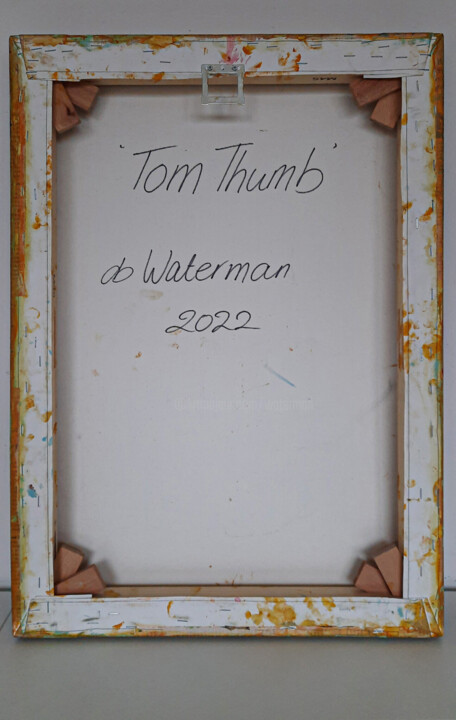 'Tom Thumb'
db Waterman
2022